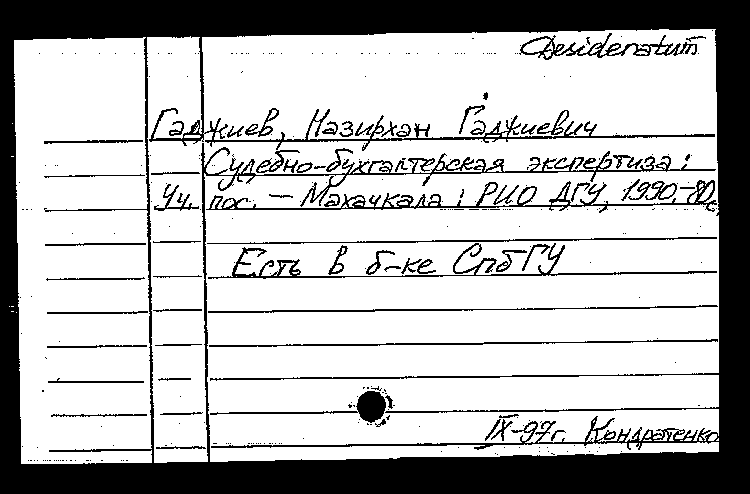 Desideratum
Гаджиев, Назирхан Гаджиевич
Судебно-бухгалтерская экспертиза :
Уч. пос. — Махачкала : РИО ДГУ, 1990.-80с.
Есть в б-ке СПбГУ
IX-97г. Кондратенко